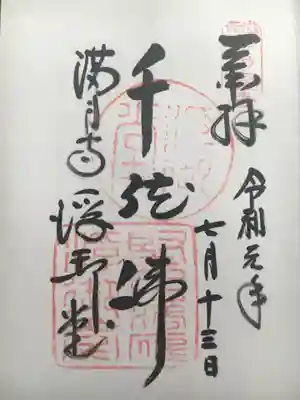 奉拝
令和元年
七月十三日
千体佛
満月寺
浮御堂